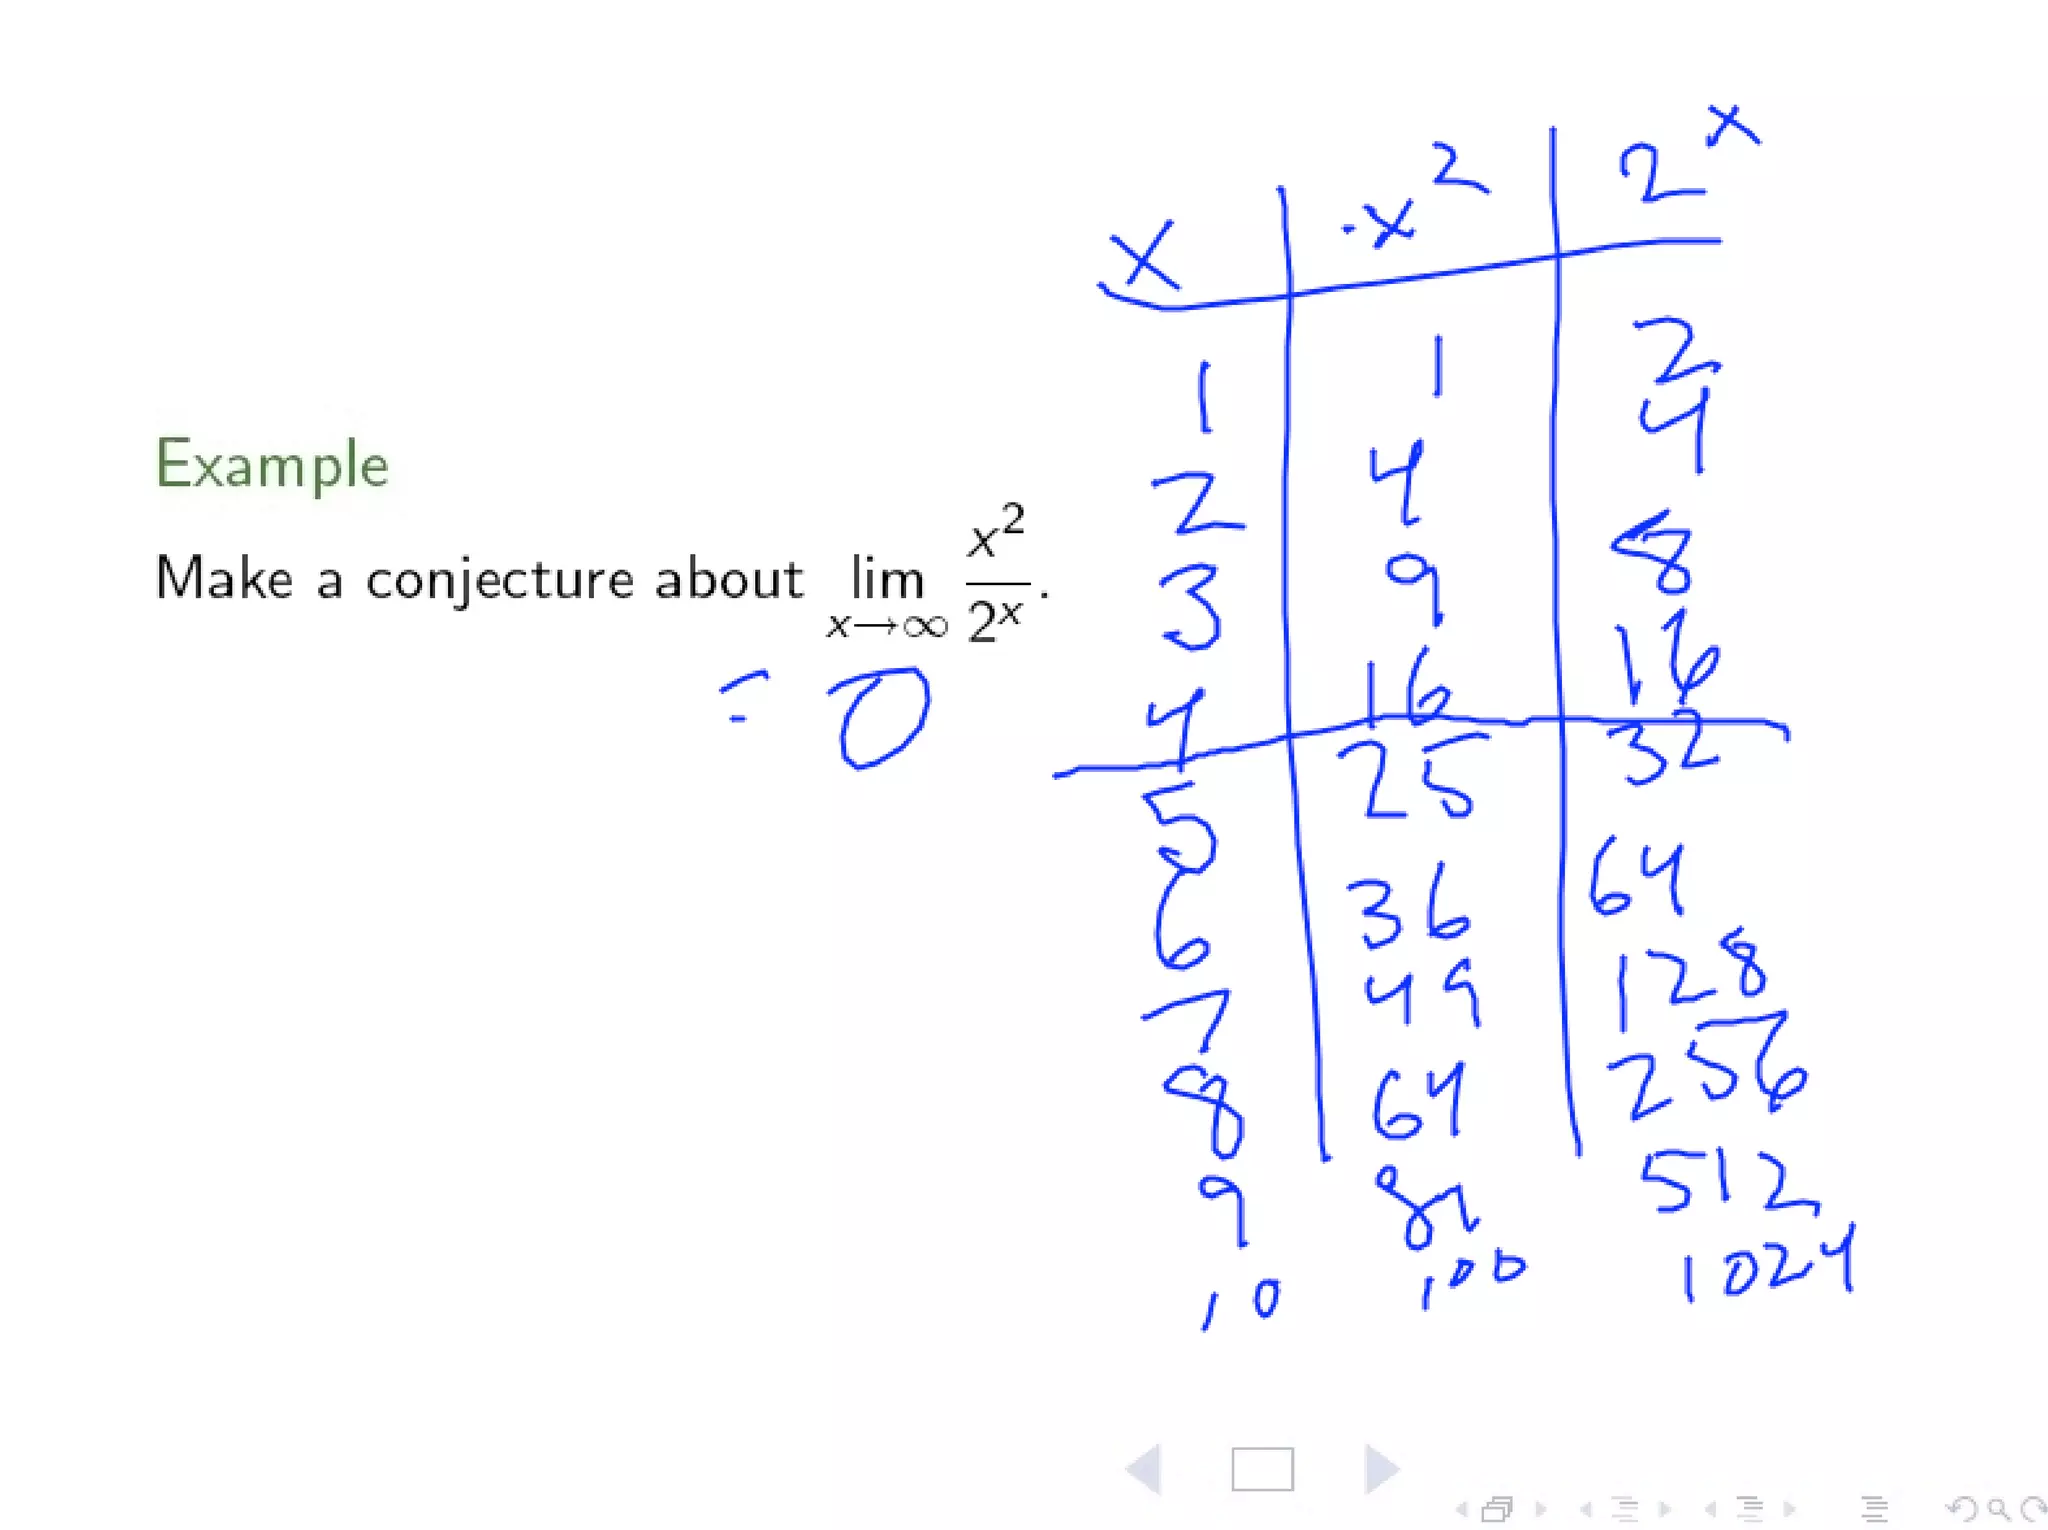 x x² 2ˣ
1 1 2
2 4 4
3 9 8
4 16 16
5 25 32
6 36 64
7 49 128
8 64 256
9 81 512
10 100 1024
Example
Make a conjecture about lim x→∞ x²/2ˣ.
= 0